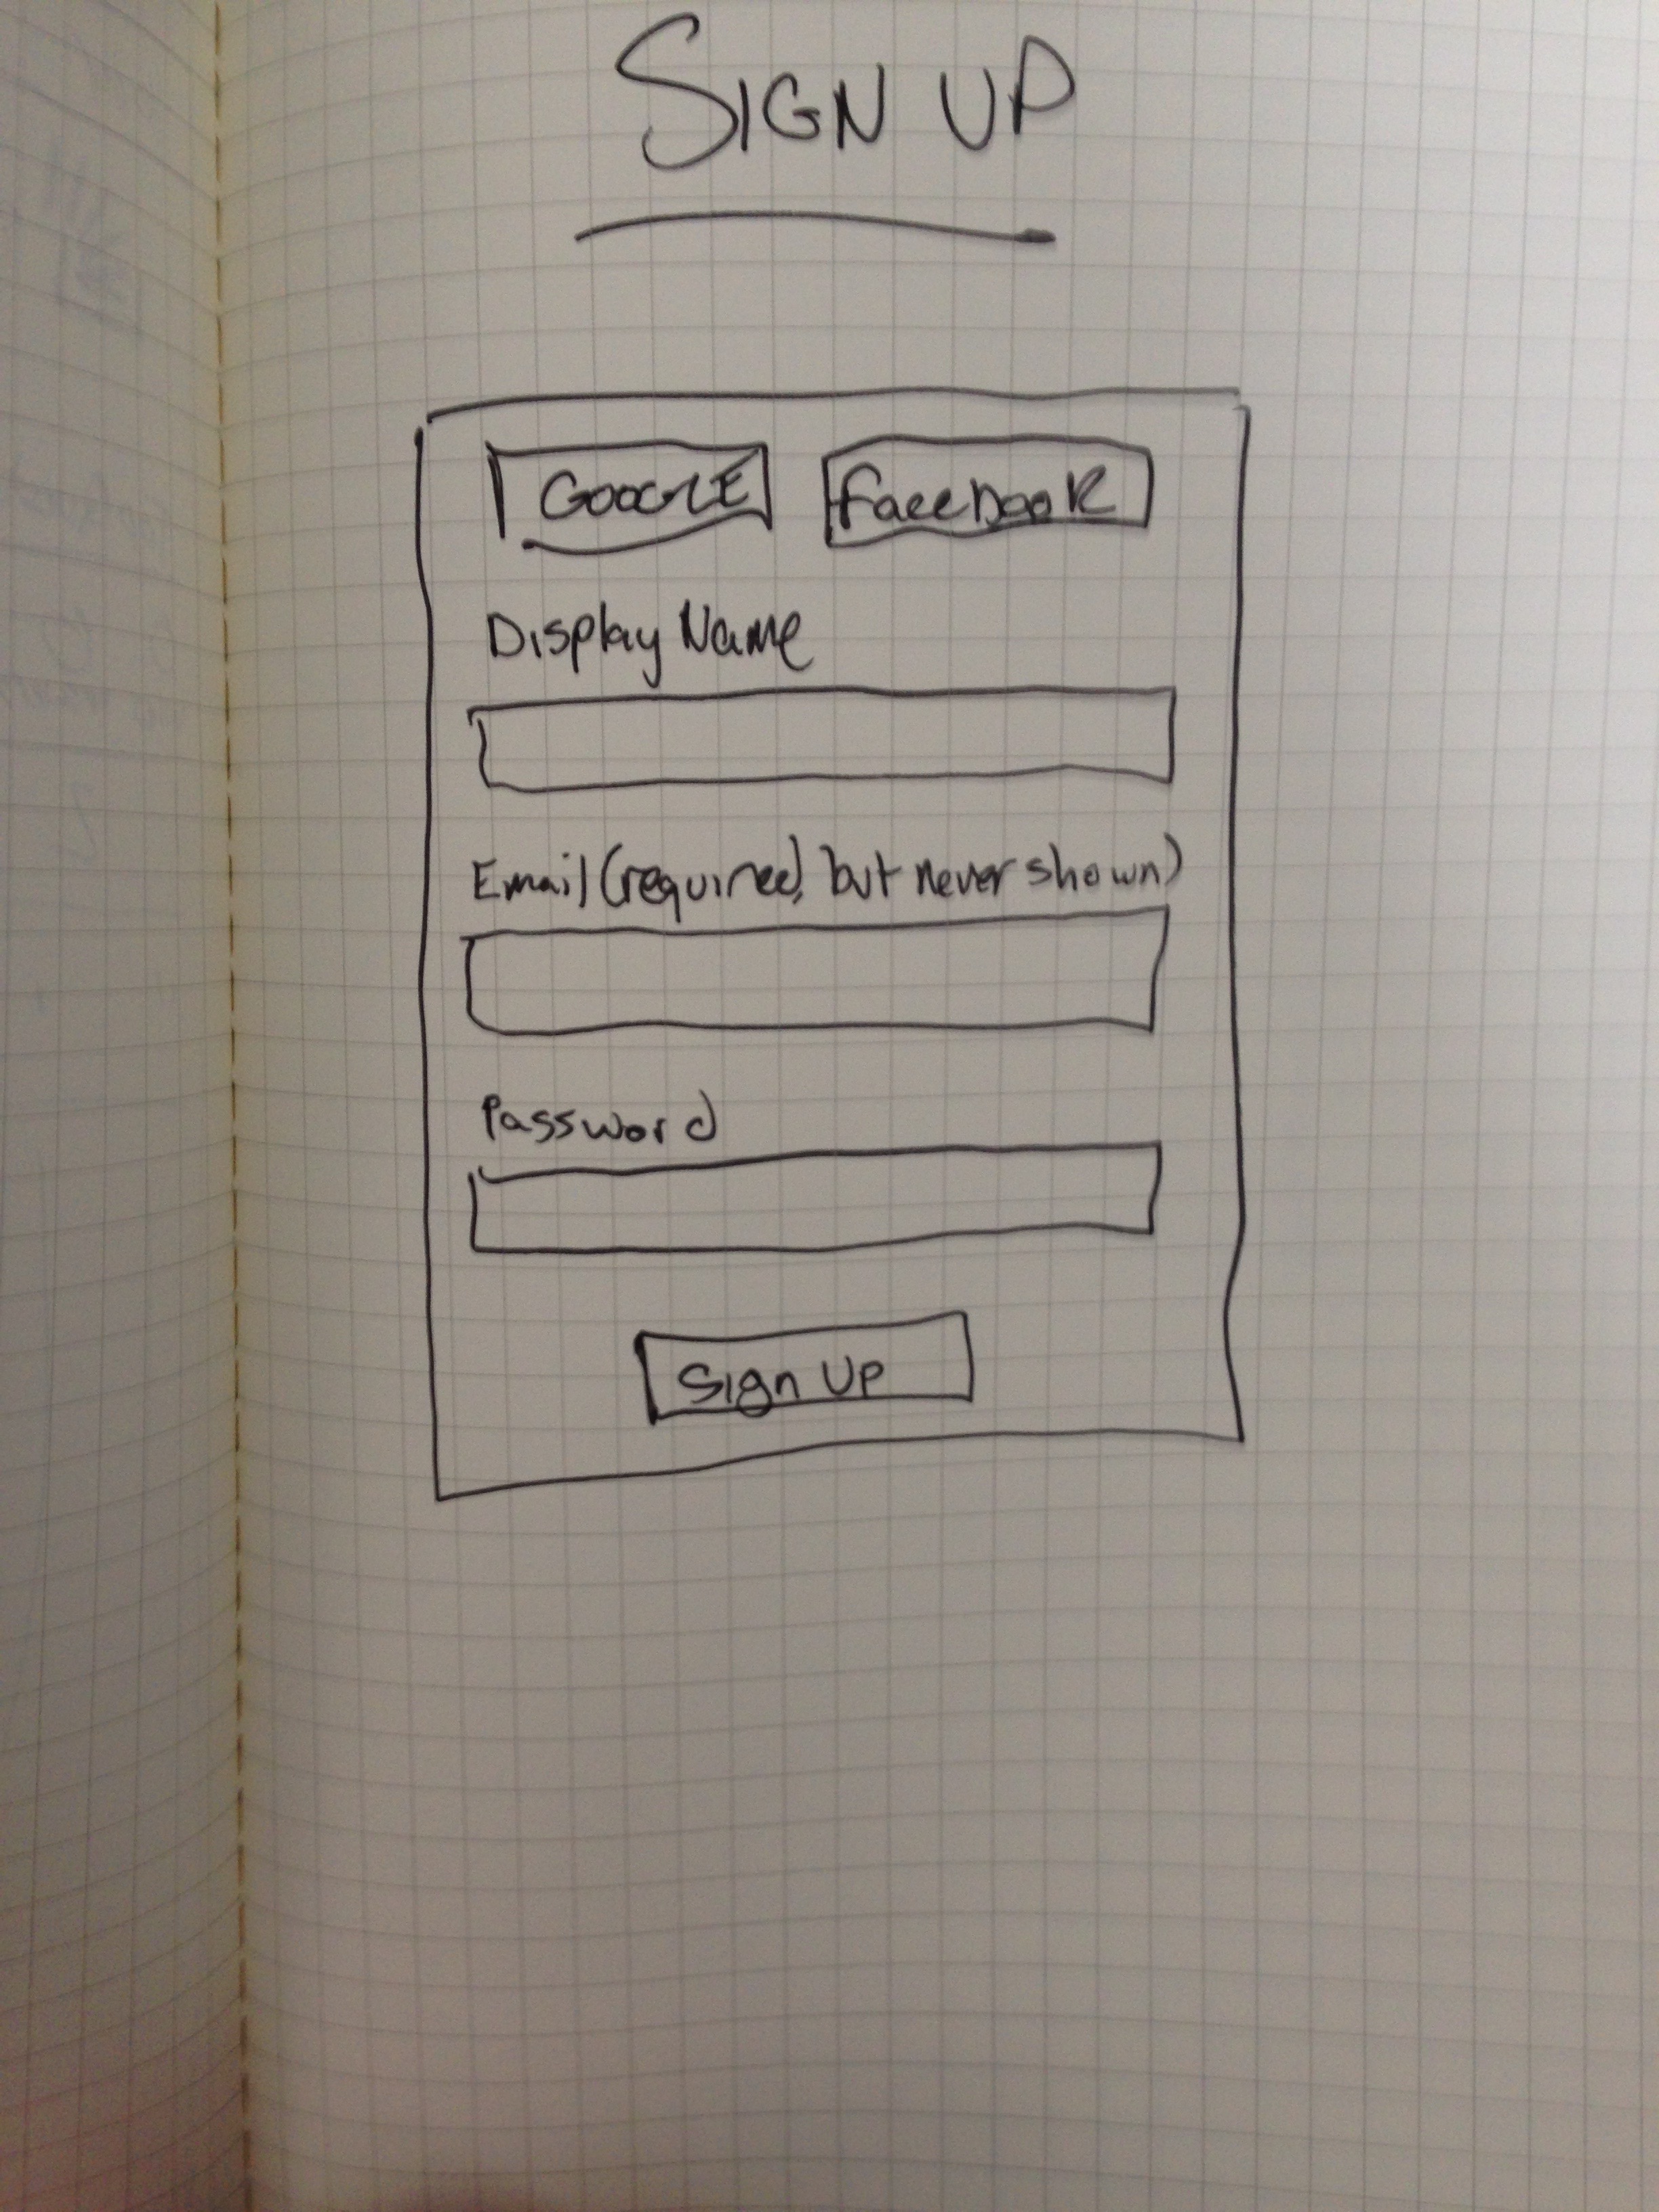 SIGN UP
GOOGLE Facebook
Display Name
Email (required, but never shown)
Password
Sign Up